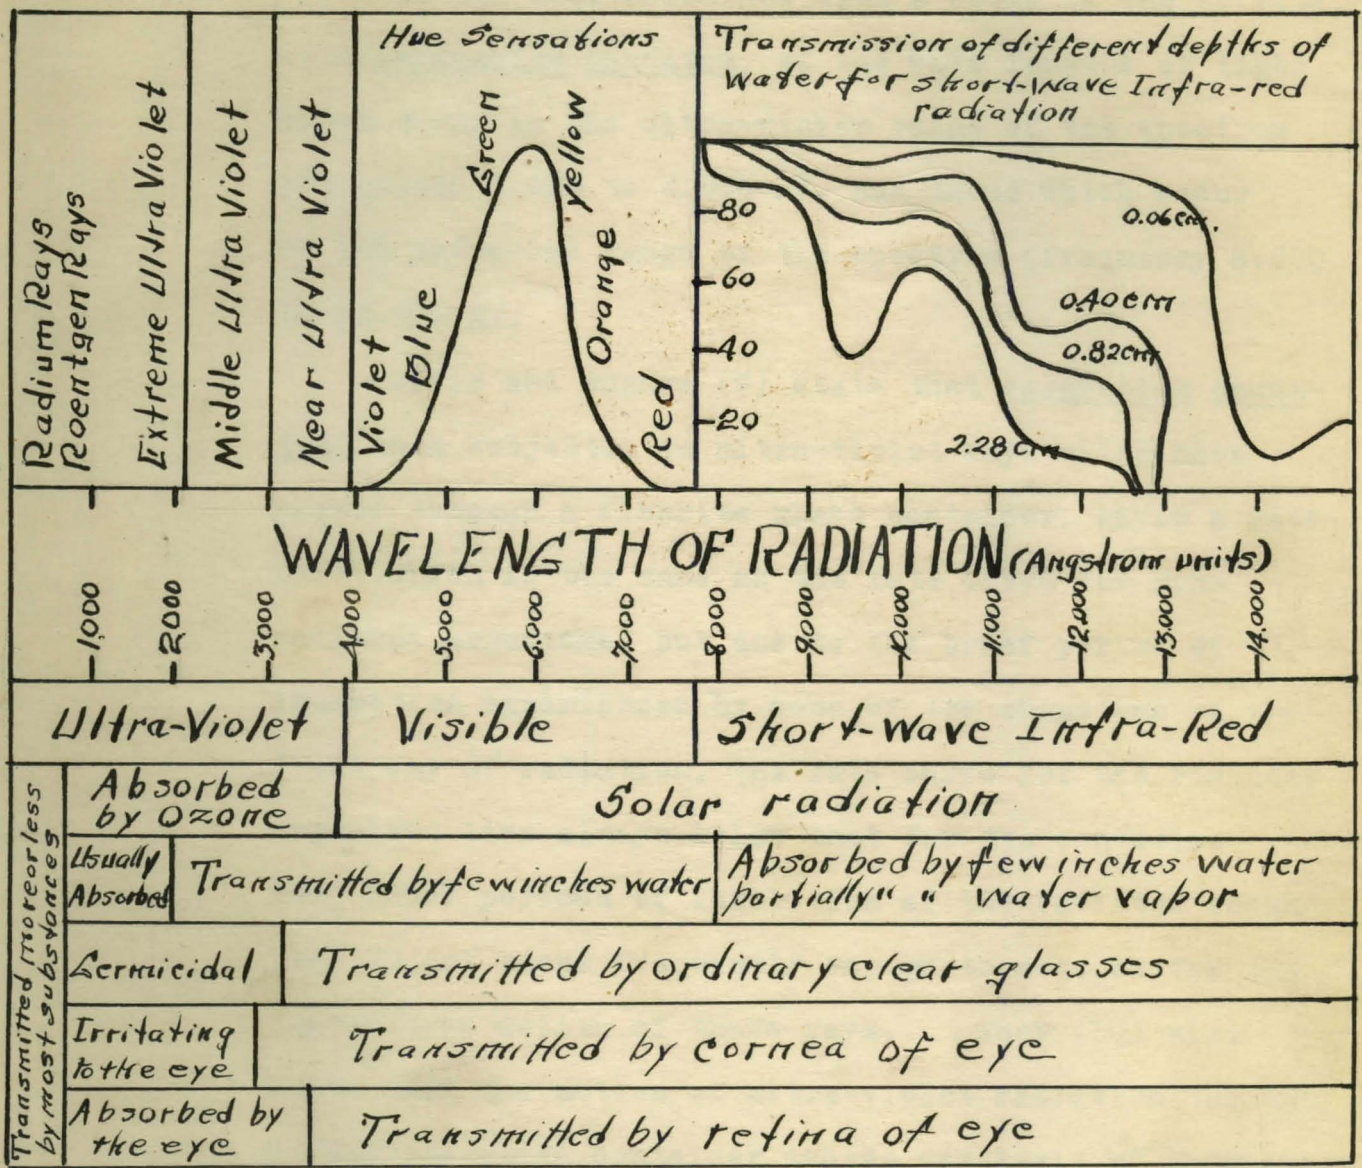 Radium Rays
Roentgen Rays
Extreme Ultra Violet
Middle Ultra Violet
Near Ultra Violet
Hue Sensations
Violet
Blue
Green
yellow
Orange
Red
Transmission of different depths of
water for short-wave Infra-red
radiation
80
60
40
20
0.06cm.
0.40cm
0.82cm
2.28cm
WAVELENGTH OF RADIATION (Angstrom units)
1,000
2,000
3,000
4,000
5,000
6,000
7,000
8,000
9,000
10,000
11,000
12,000
13,000
14,000
Ultra-Violet
Visible
Short-Wave Infra-Red
Transmitted more or less
by most substances
Absorbed
by Ozone
Solar radiation
Usually
Absorbed
Transmitted by few inches water
Absorbed by few inches water
partially " " water vapor
Germicidal
Transmitted by ordinary clear glasses
Irritating
to the eye
Transmitted by cornea of eye
Absorbed by
the eye
Transmitted by retina of eye